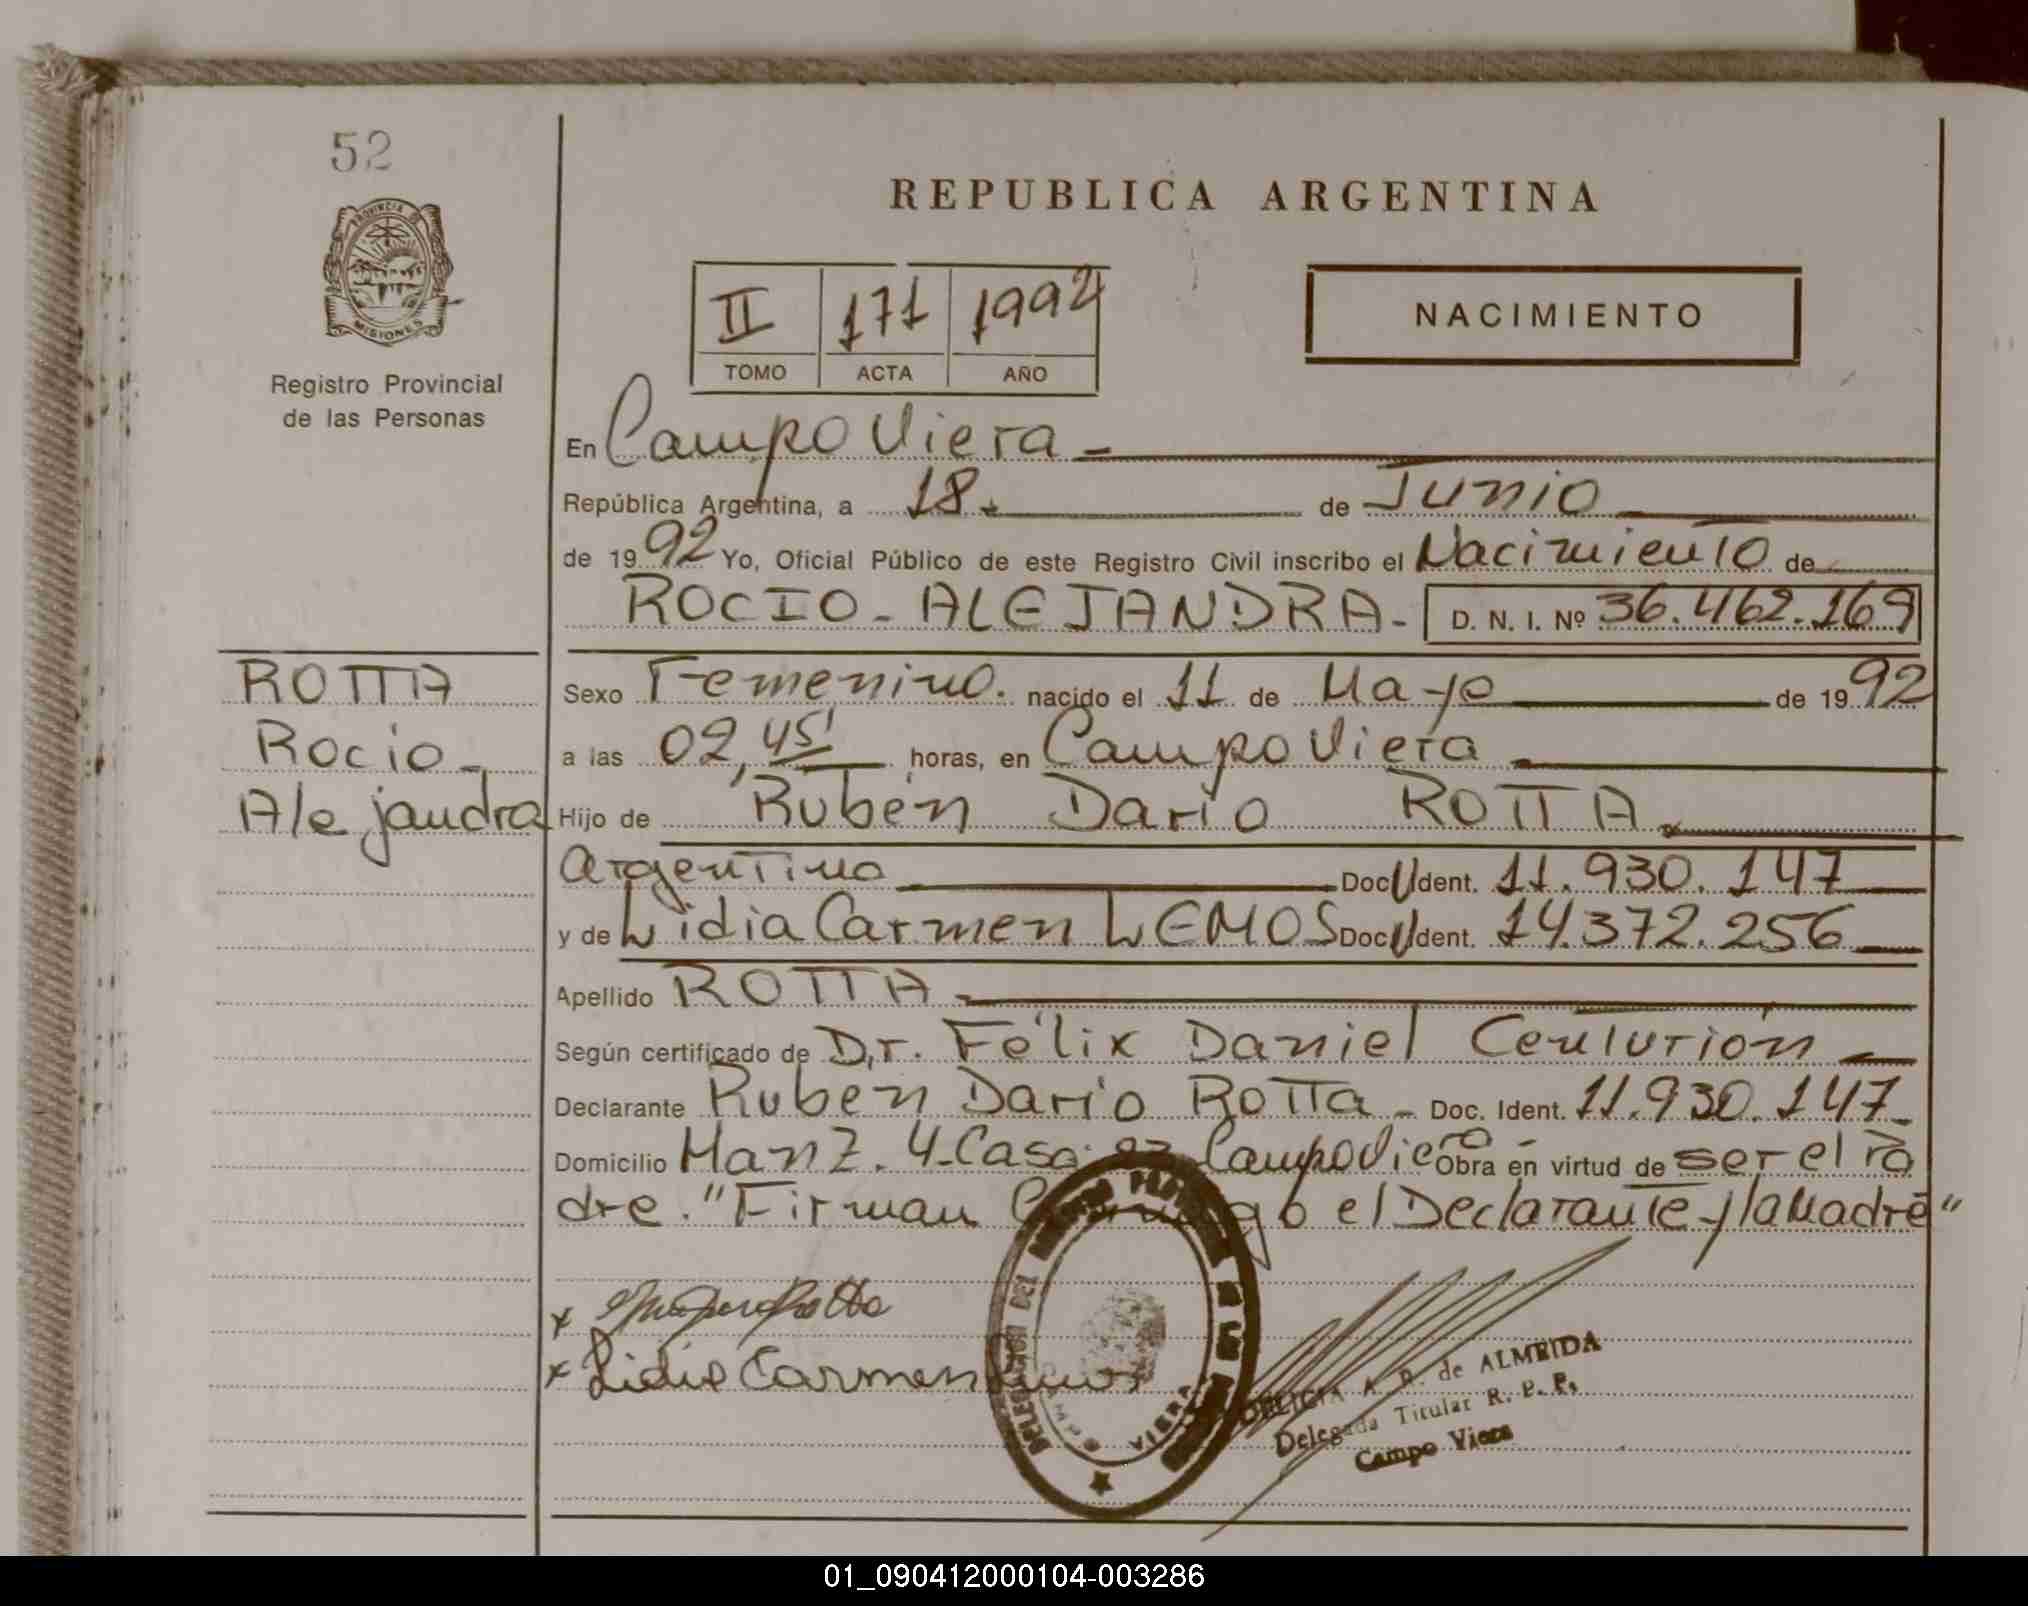 52
PROVINCIA DE
MISIONES
Registro Provincial
de las Personas
REPUBLICA ARGENTINA
II 171 1992
TOMO ACTA AÑO
NACIMIENTO
En Campo Viera -
República Argentina, a 18 - de Junio
de 1992 Yo, Oficial Público de este Registro Civil inscribo el Nacimiento de
ROCIO - ALEJANDRA - D. N. I. Nº 36.462.169
ROTTA
Rocio -
Alejandra
Sexo Femenino. nacido el 11 de Mayo de 1992
a las 02,45' horas, en Campo Viera
Hijo de Rubén Darío ROTTA
Argentino Doc. Ident. 11.930.147
y de Lidia Carmen LEMOS Doc. Ident. 14.372.256
Apellido ROTTA
Según certificado de Dr. Félix Daniel Centurión
Declarante Ruben Darío Rotta - Doc. Ident. 11.930.147
Domicilio Manz. 4 - Casa Campo Viera - Obra en virtud de ser el Pa
dre. "Firman el Declarante y la Madre"
x Rotta
x Lidia Carmen Lemos
DELEGACION DEL REGISTRO PROVINCIAL DE LAS
VIERA
DELICIA A. R. de ALMEIDA
Delegada Titular R. P. P.
Campo Viera
01_090412000104-003286